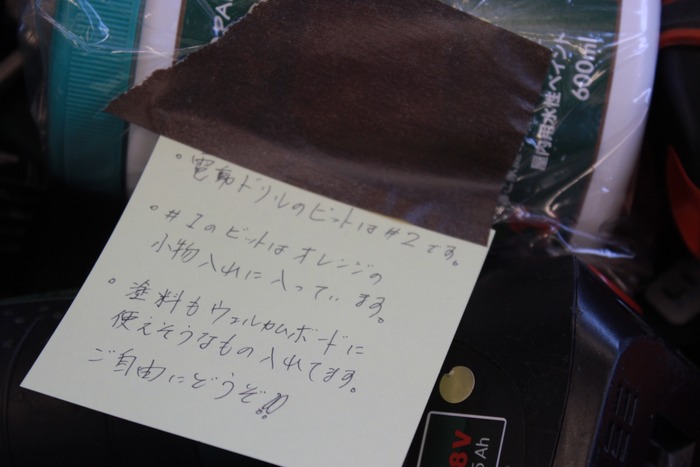 屋内用水性ペイント
600ml
・電動ドリルのビットは#2です。
・#1のビットはオレンジの
小物入れに入っています。
・塗料もウェルカムボードに
使えそうなもの入れてます。
ご自由にどうぞ!!
8V
5Ah